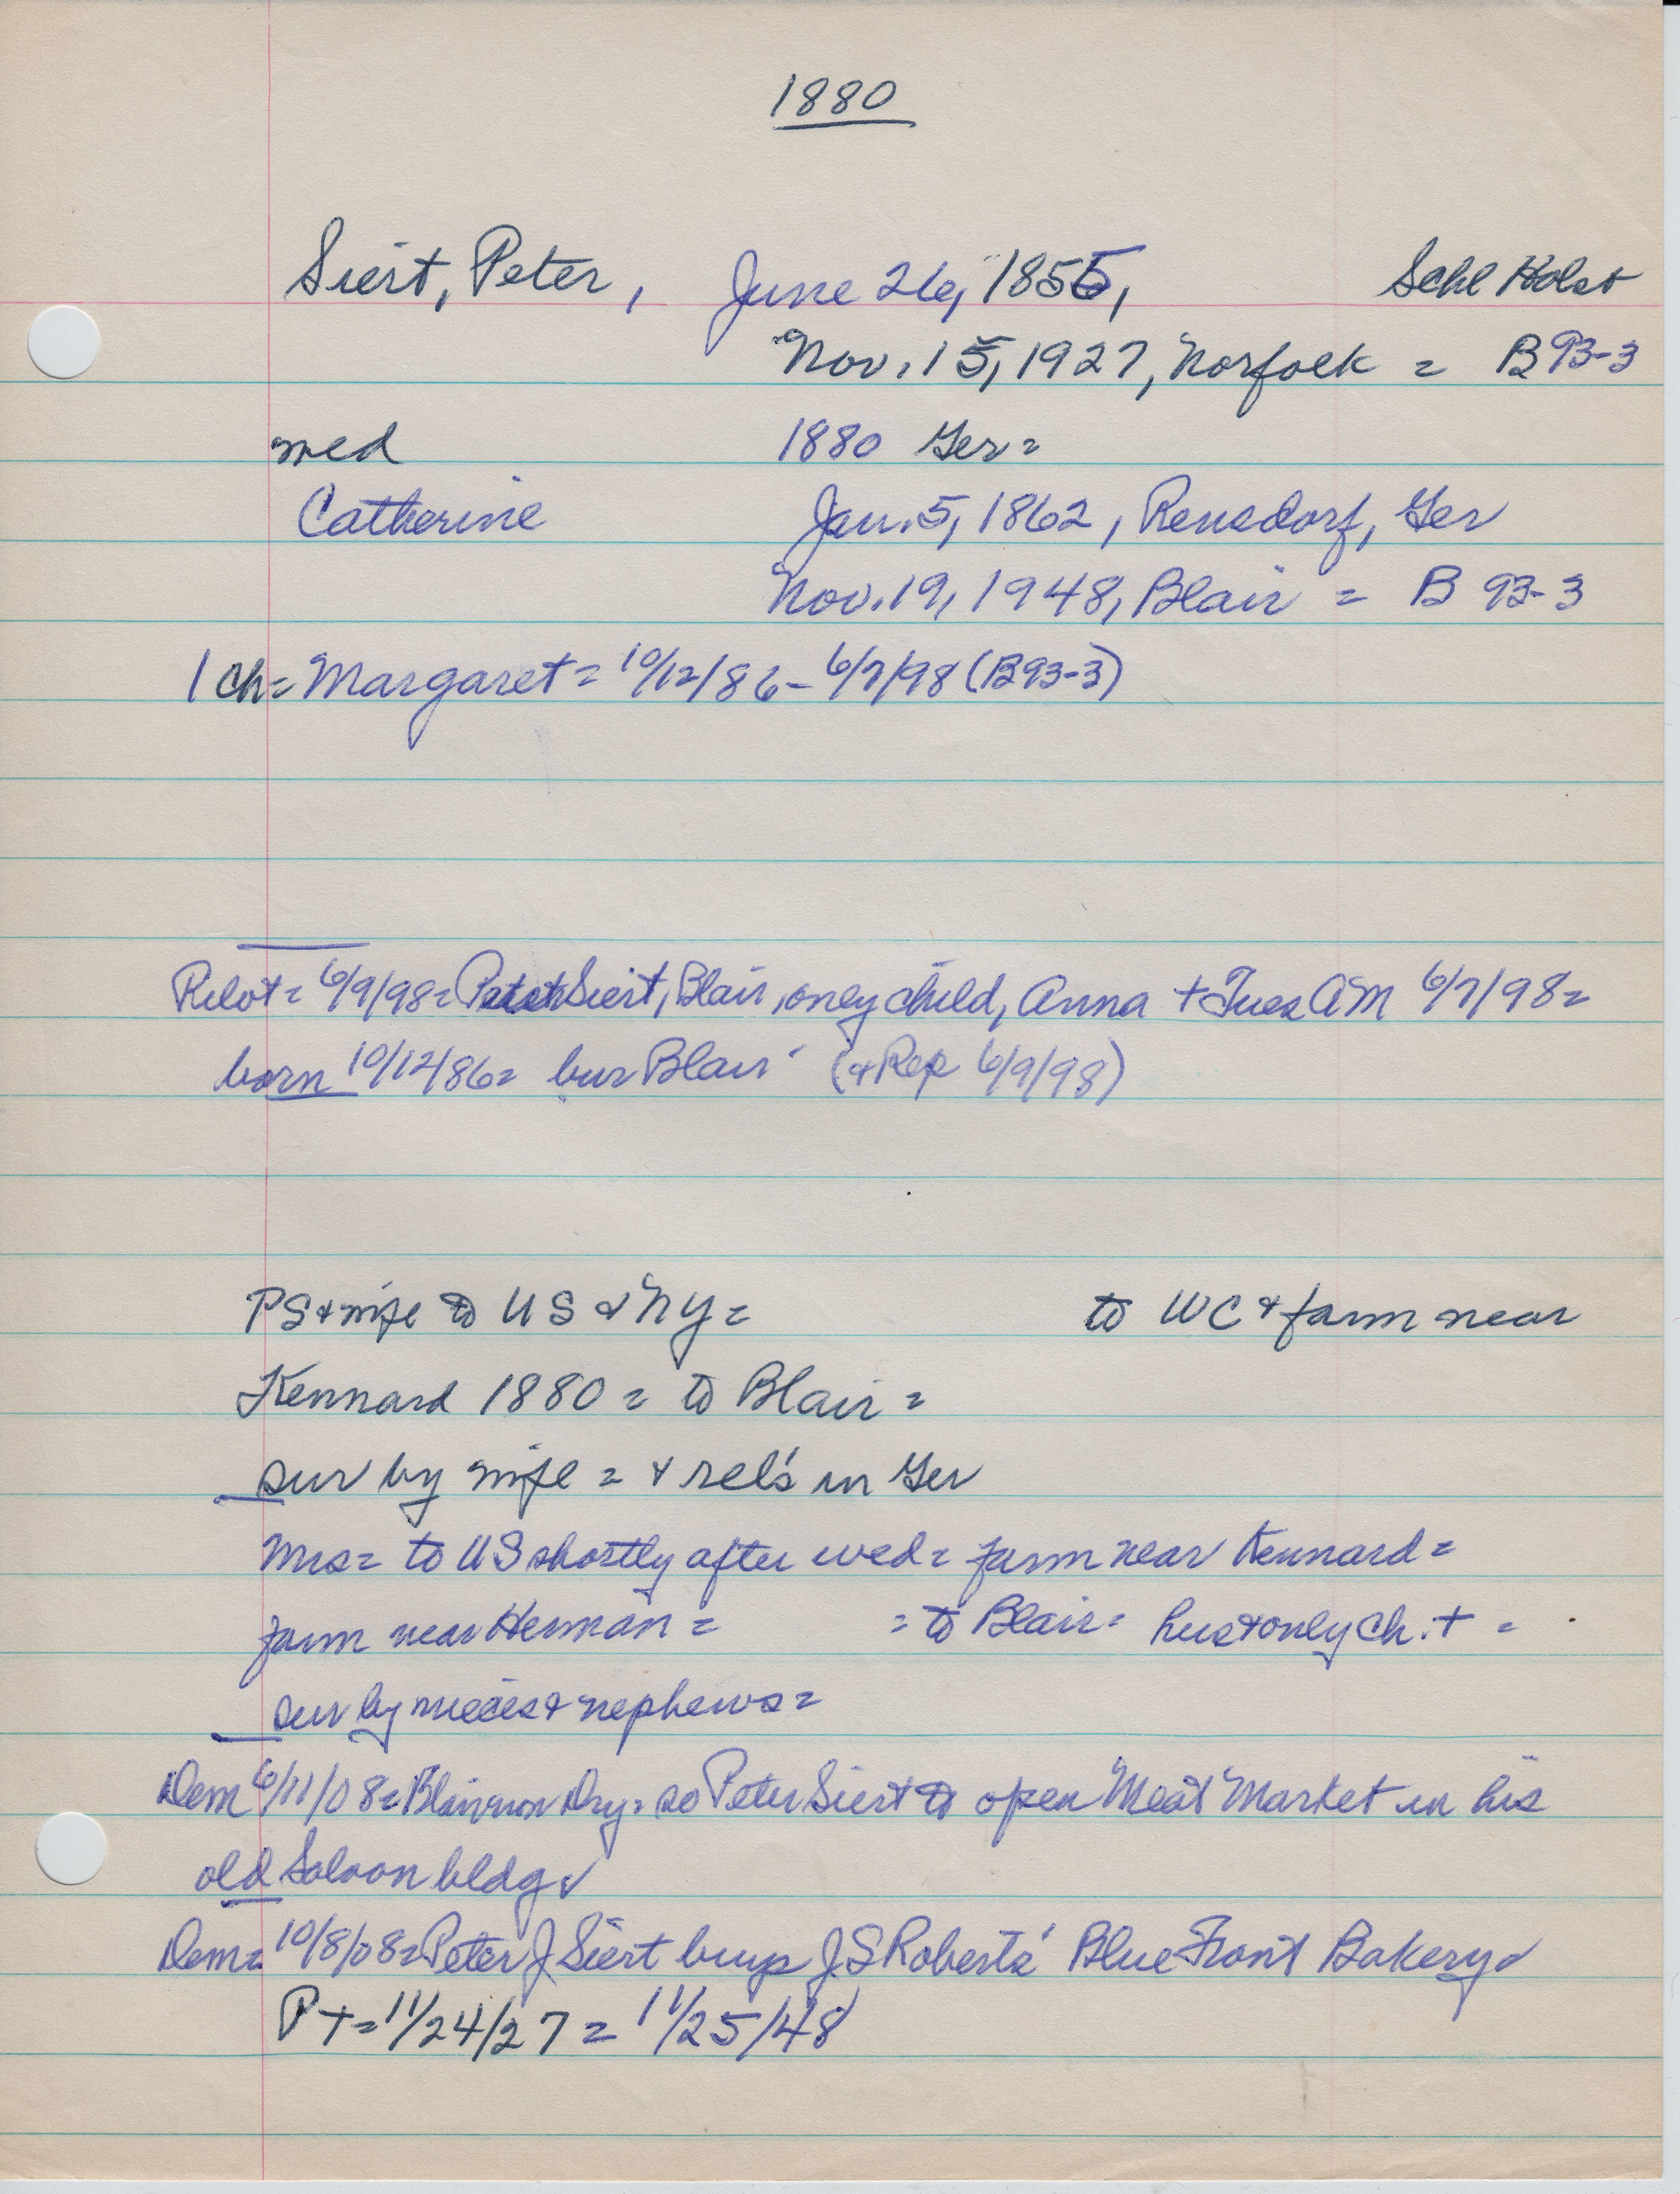 1880
Siert, Peter, June 26, 1855, Schl Holst
Nov. 15, 1927, Norfolk = B 93-3
med 1880 Ger =
Catherine Jan. 5, 1862, Rensdorf, Ger
Nov. 19, 1948, Blair = B 93-3
1 ch = Margaret = 10/12/86 - 6/7/98 (B93-3)
Pilot = 6/9/98 = Siert, Blair, only child, Anna + Tues AM 6/7/98 =
born 10/12/86 = bur Blair (& Rep 6/9/98)
PS & wife to US & NY = to WC & farm near
Kennard 1880 = to Blair =
sur by wife = & rel's in Ger
Mrs = to US shortly after wed = farm near Kennard =
farm near Herman = = to Blair = hus & only ch. + =
sur by nieces & nephews =
Dem 6/11/08 = Blair now Dry = so Peter Siert to open Meat Market in his
old Saloon bldg
Dem = 10/8/08 = Peter J Siert buys J S Roberts' Blue Front Bakery
P T = 11/24/27 = 11/25/48